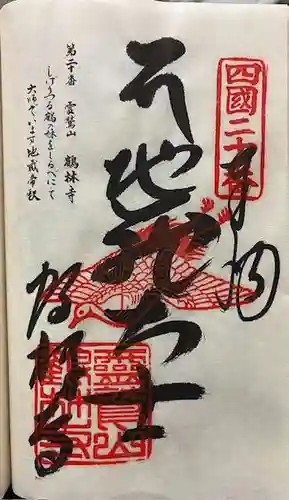 四國二十番
奉納
地蔵大士
鶴林寺
靈鷲山
第二十番 霊鷲山 鶴林寺
しげりつる鶴の林をしるべにて
大師ぞいます地蔵帝釈